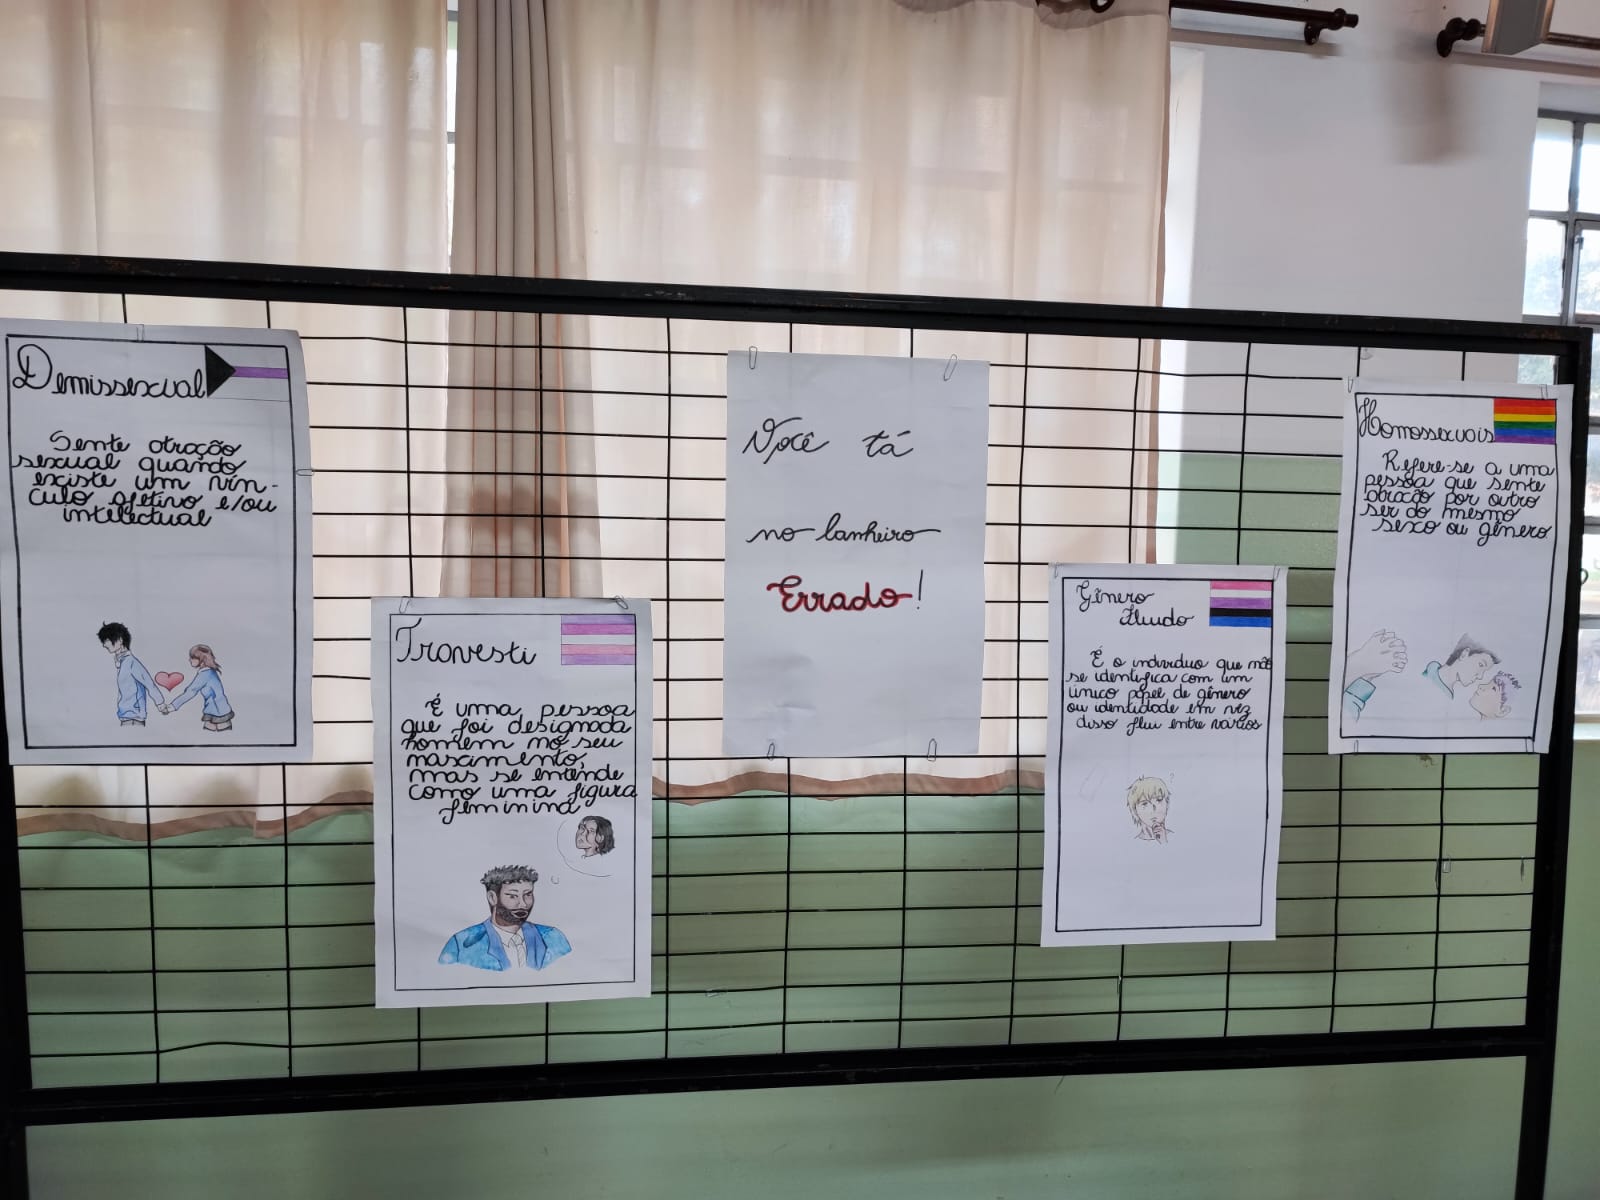 Demissexual
Sente atração
sexual quando
existe um vín-
culo afetivo e/ou
intelectual
Travesti
É uma pessoa
que foi designada
homem no seu
nascimento,
mas se entende
como uma figura
feminina
Você tá
no banheiro
Errado!
Gênero
Fluido
É o individuo que não
se identifica com um
único papel de gênero
ou identidade em vez
disso flui entre vários
?
Homossexuais
Refere-se a uma
pessoa que sente
atração por outro
ser do mesmo
sexo ou gênero